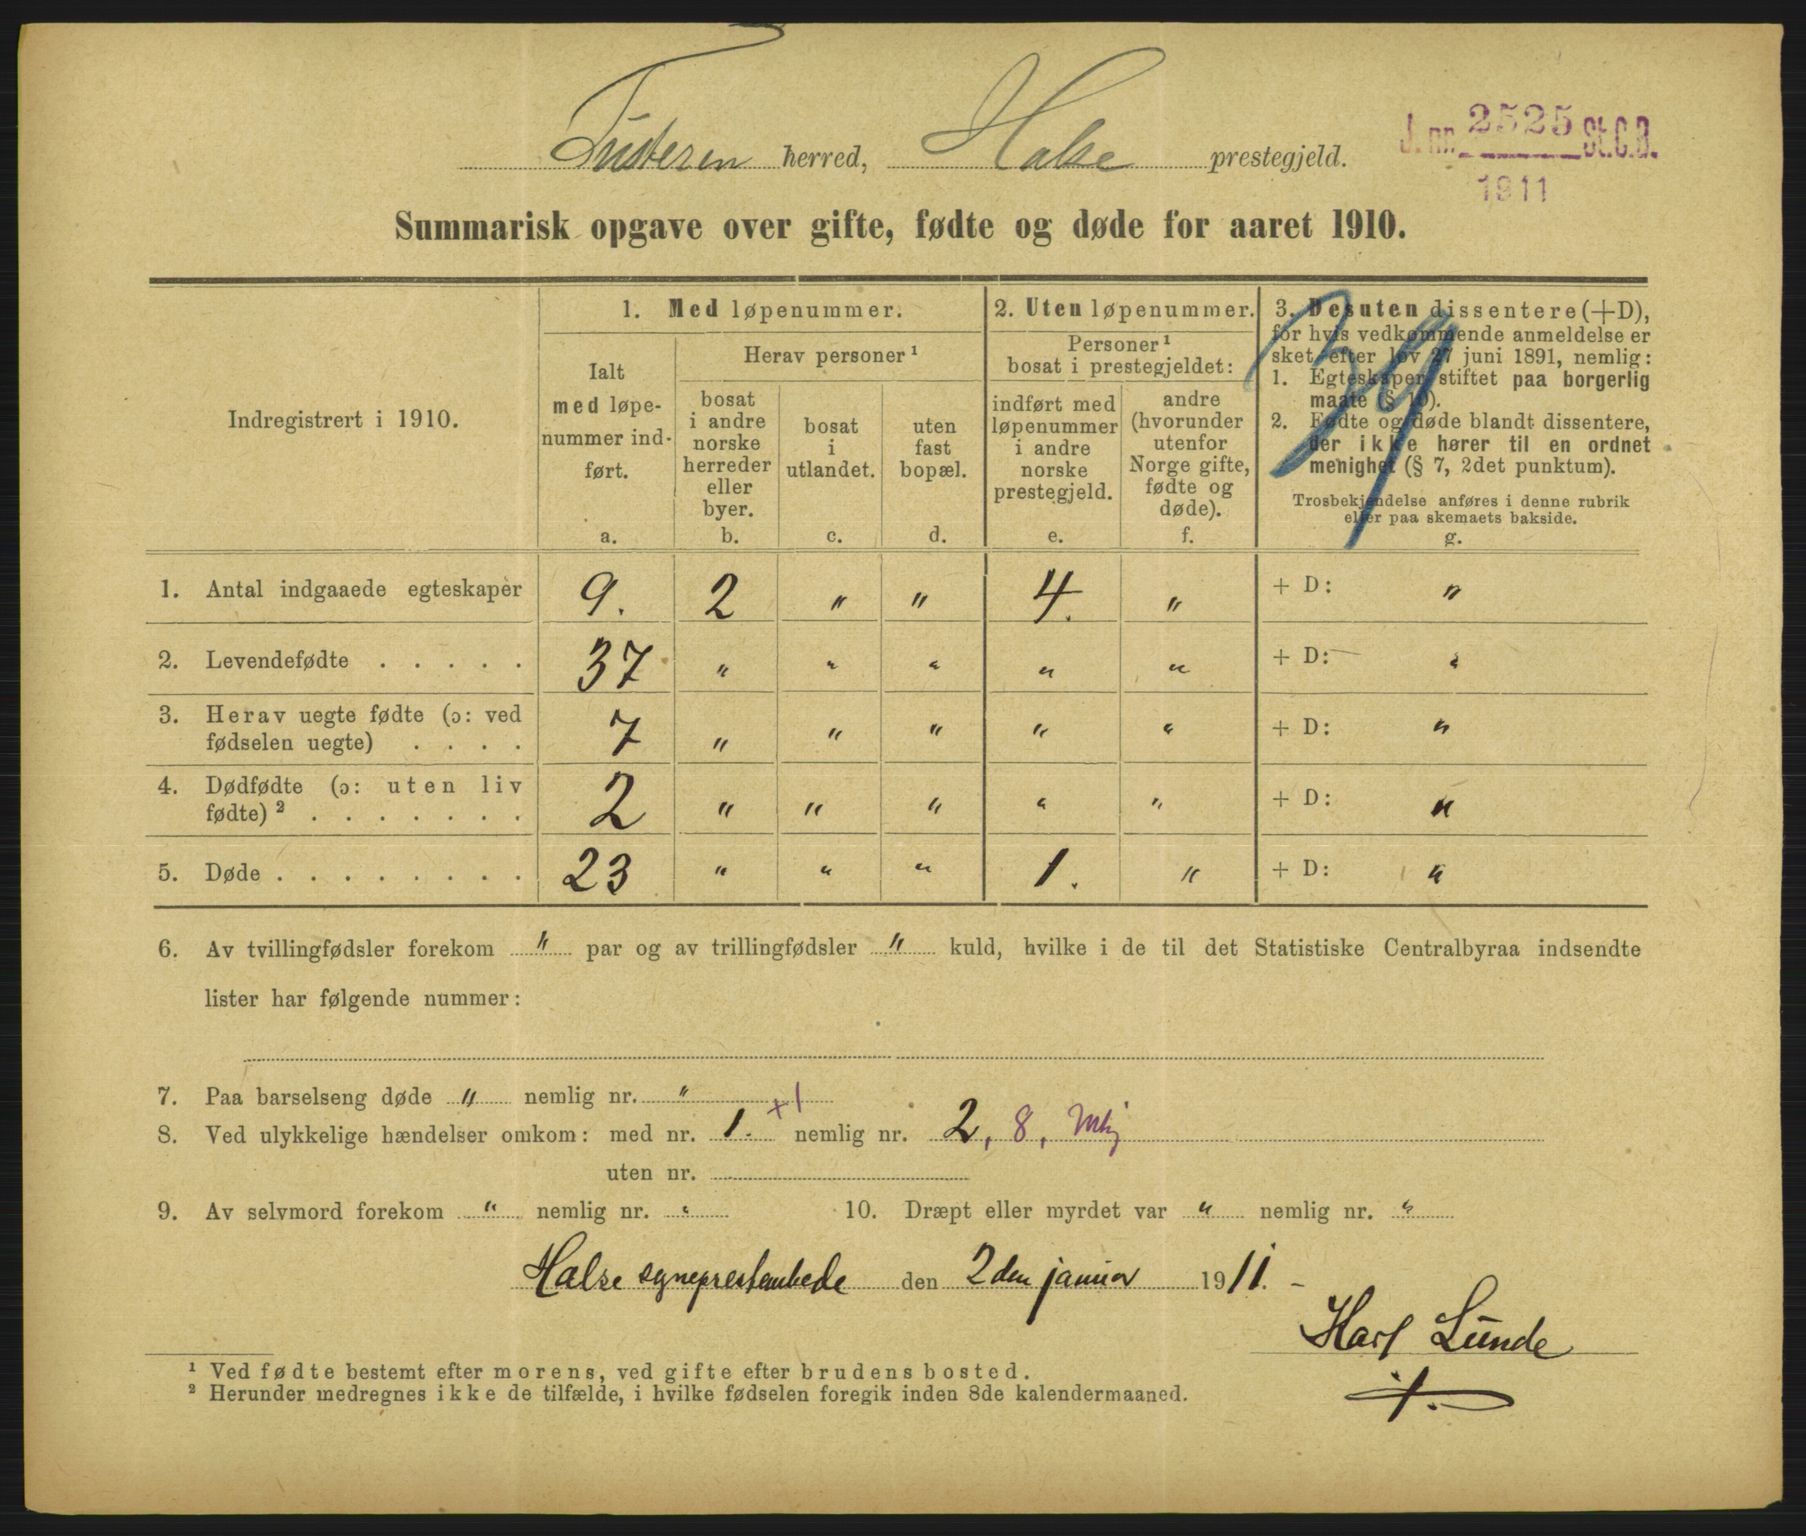 Tusteren herred, Halse prestegjeld.
J. nr. 2525 St.C.B.
1911
Summarisk opgave over gifte, fødte og døde for aaret 1910.
39
Indregistrert i 1910.
1. Med løpenummer.
Ialt med løpenummer indført.
a.
Herav personer ¹
bosat i andre norske herreder eller byer.
b.
bosat i utlandet.
c.
uten fast bopæl.
d.
2. Uten løpenummer.
Personer ¹ bosat i prestegjeldet:
indført med løpenummer i andre norske prestegjeld.
e.
andre (hvorunder utenfor Norge gifte, fødte og døde).
f.
3. Desuten dissentere (+D),
for hvis vedkommende anmeldelse er
sket efter lov 27 juni 1891, nemlig:
1. Egteskaper stiftet paa borgerlig
maate (§ 10).
2. Fødte og døde blandt dissentere,
der ikke hører til en ordnet
menighet (§ 7, 2det punktum).
Trosbekjendelse anføres i denne rubrik
eller paa skemaets bakside.
g.
1. Antal indgaaede egteskaper 9. 2 " " 4. " + D: "
2. Levendefødte . . . . . 37 " " " " " + D: "
3. Herav uegte fødte (ɔ: ved
fødselen uegte) . . . . 7 " " " " " + D: "
4. Dødfødte (ɔ: uten liv
fødte) ² . . . . . . . 2 " " " " " + D: "
5. Døde . . . . . . . . 23 " " " 1. " + D: "
6. Av tvillingfødsler forekom " par og av trillingfødsler " kuld, hvilke i de til det Statistiske Centralbyraa indsendte
lister har følgende nummer:
7. Paa barselseng døde " nemlig nr. "
8. Ved ulykkelige hændelser omkom: med nr. 1. +1 nemlig nr. 2, 8,
uten nr.
9. Av selvmord forekom " nemlig nr. " 10. Dræpt eller myrdet var " nemlig nr. "
Halse sogneprestembede den 2den januar 1911. -
Karl Lunde
¹ Ved fødte bestemt efter morens, ved gifte efter brudens bosted.
² Herunder medregnes ikke de tilfælde, i hvilke fødselen foregik inden 8de kalendermaaned.